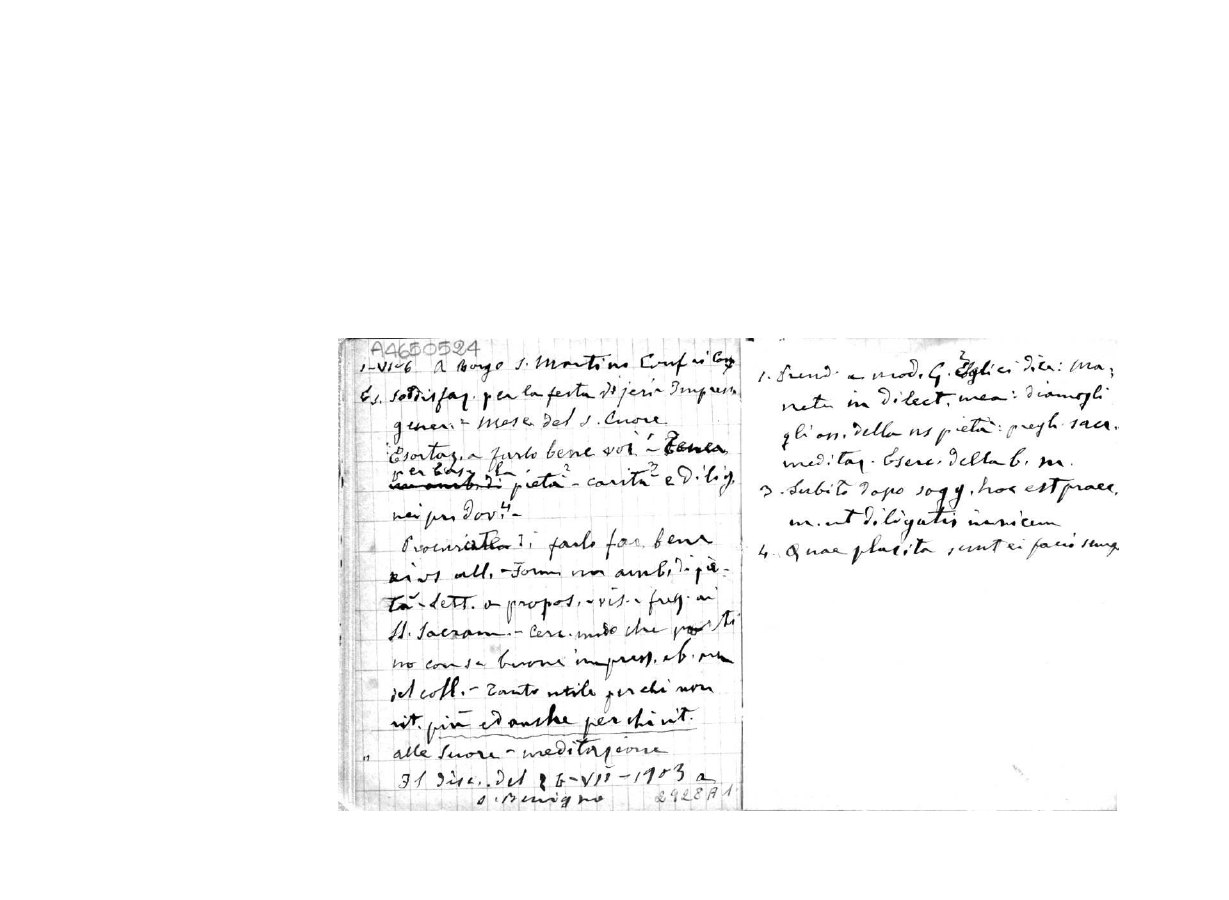 A4650524
1-VI-6 A Borgo S. Martino Conf ai
Es. Soddisfaz. per la festa di jeri Impress
gener. = Mese del S. Cuore
Esortaz. a farlo bene voi 1 -
per bas. la pietà 2 - carità 3 e dilig.
nei pri dov. 4 -
di farlo far bene
ai vs all. - Form. un amb. di pie-
tà - Lett. a propos. - vis. - freq. ai
SS. Sacram. - Cerc. modo che
no con se buone impress. e b. 
del coll. - Tanto utile per chi non
rit. più ed anche per chi rit.
" alle Suore - meditazione
Il disc. del 26-VII-1903 a
S. Benigno 2928A1
1. Prend. a mod. G. 2 Egli ci dice: ma-
nete in dilect. mea: diamogli
gli oss. della ns pietà: pregh. sacr.
meditaz. Eserc. della b. m.
3. Subito dopo sogg. hoc est praec.
m. ut diligatis invicem
4. Quae placita sunt ei facio semp.